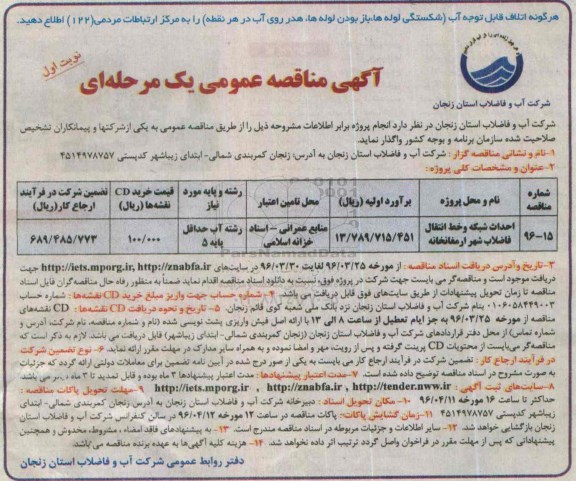 هرگونه اتلاف قابل توجه آب (شکستگی لوله ها، باز بودن لوله ها، هدر روی آب در هر نقطه) را به مرکز ارتباطات مردمی (۱۲۲) اطلاع دهید.
نوبت اول
آگهی مناقصه عمومی یک مرحله‌ای
شرکت آب و فاضلاب استان زنجان
شرکت آب و فاضلاب استان زنجان در نظر دارد انجام پروژه برابر اطلاعات مشروحه ذیل را از طریق مناقصه عمومی به یکی ازشرکتها و پیمانکاران تشخیص
صلاحیت شده سازمان برنامه و بودجه کشور واگذار نماید.
۱-نام و نشانی مناقصه گزار : شرکت آب و فاضلاب استان زنجان به آدرس: زنجان کمربندی شمالی- ابتدای زیباشهر کدپستی ۴۵۱۴۹۷۸۷۵۷
۲-عنوان و مشخصات کلی پروژه:
شماره مناقصه | نام و محل پروژه | برآورد اولیه (ریال) | محل تامین اعتبار | رشته و پایه مورد نیاز | قیمت خرید CD نقشه‌ها (ریال) | تضمین شرکت در فرآیند ارجاع کار (ریال)
۹۶-۱۵ | احداث شبکه وخط انتقال فاضلاب شهر ارمغانخانه | ۱۳/۷۸۹/۷۱۵/۴۵۱ | منابع عمرانی – اسناد خزانه اسلامی | رشته آب حداقل پایه ۵ | ۱۰۰/۰۰۰ | ۶۸۹/۴۸۵/۷۷۳
۳-تاریخ وآدرس دریافت اسناد مناقصه : از مورخه ۹۶/۰۳/۲۵ لغایت ۹۶/۰۳/۳۰ در سایت‌های http://iets.mporg.ir, http://znabfa.ir جهت
دریافت موجود است و مناقصه‌گر می بایست جهت شرکت در پروژه فوق، نسبت به دانلود اسناد مناقصه اقدام نماید ضمناً به منظور رفاه حال مناقصه‌گران فایل اسناد
مناقصه تا زمان تحویل پیشنهادات از طریق سایت‌های فوق قابل دریافت می باشد. ۴- شماره حساب جهت واریز مبلغ خرید CD نقشه‌ها : شماره حساب
۰۱۰۶۰۵۸۴۴۹۰۰۳ بنام شرکت آب و فاضلاب استان زنجان نزد بانک ملی شعبه کوی قائم زنجان. ۵- تاریخ و نحوه دریافت CD نقشه‌ها : CD نقشه‌های
مناقصه از مورخه ۹۶/۰۳/۲۵ به جز ایام تعطیل از ساعت ۸ الی ۱۳ با ارائه اصل فیش واریزی پشت نویسی شده (نام و شماره مناقصه، نام شرکت، آدرس و
شماره تماس) از محل دفتر قراردادهای شرکت آب و فاضلاب استان زنجان (زنجان کمربندی شمالی- ابتدای زیباشهر) قابل دریافت می باشد. لازم به ذکر است که
مناقصه‌گر می‌بایست از محتویات CD پرینت گرفته و پس از رویت، مهر و امضا نموده و به همراه سایر مدارک در مهلت مقرر ارائه نماید. ۶- نوع تضمین شرکت
در فرآیند ارجاع کار : تضمین شرکت در فرآیند ارجاع کار می بایست به یکی از صور درج شده در آیین نامه تضمین برای معاملات دولتی ارائه گردد که جزئیات
به صورت مشروح در اسناد مناقصه توضیح داده شده است. ۷-مدت اعتبار پیشنهادها: مدت اعتبار پیشنهادها ۳ ماه بوده و قابل تمدید تا ۳ ماه دیگر می باشد
۸-سایت‌های ثبت آگهی : http://iets.mporg.ir , http://znabfa.ir , http://tender.nww.ir ۹-مهلت تحویل پاکات مناقصه :
حداکثر تا ساعت ۱۶ مورخه ۹۶/۰۴/۱۱ ۱۰- مکان تحویل اسناد : دبیرخانه شرکت آب و فاضلاب استان زنجان به آدرس زنجان کمربندی شمالی- ابتدای
زیباشهر کدپستی ۴۵۱۴۹۷۸۷۵۷ ۱۱-زمان گشایش پاکات: پاکات مناقصه در ساعت ۱۲ مورخه ۹۶/۰۴/۱۲ در سالن کنفرانس شرکت آب و فاضلاب استان
زنجان بازگشایی خواهد شد. ۱۲- سایر اطلاعات و جزئیات مربوطه در اسناد مناقصه مندرج است. ۱۳- به پیشنهادهای فاقد امضاء ، مشروط، مخدوش و همچنین
پیشنهاداتی که پس از مهلت مقرر در فراخوان واصل گردد ترتیب اثر داده نخواهد شد. ۱۴- هزینه کلیه آگهی‌ها به عهده برنده مناقصه می باشد.
دفتر روابط عمومی شرکت آب و فاضلاب استان زنجان